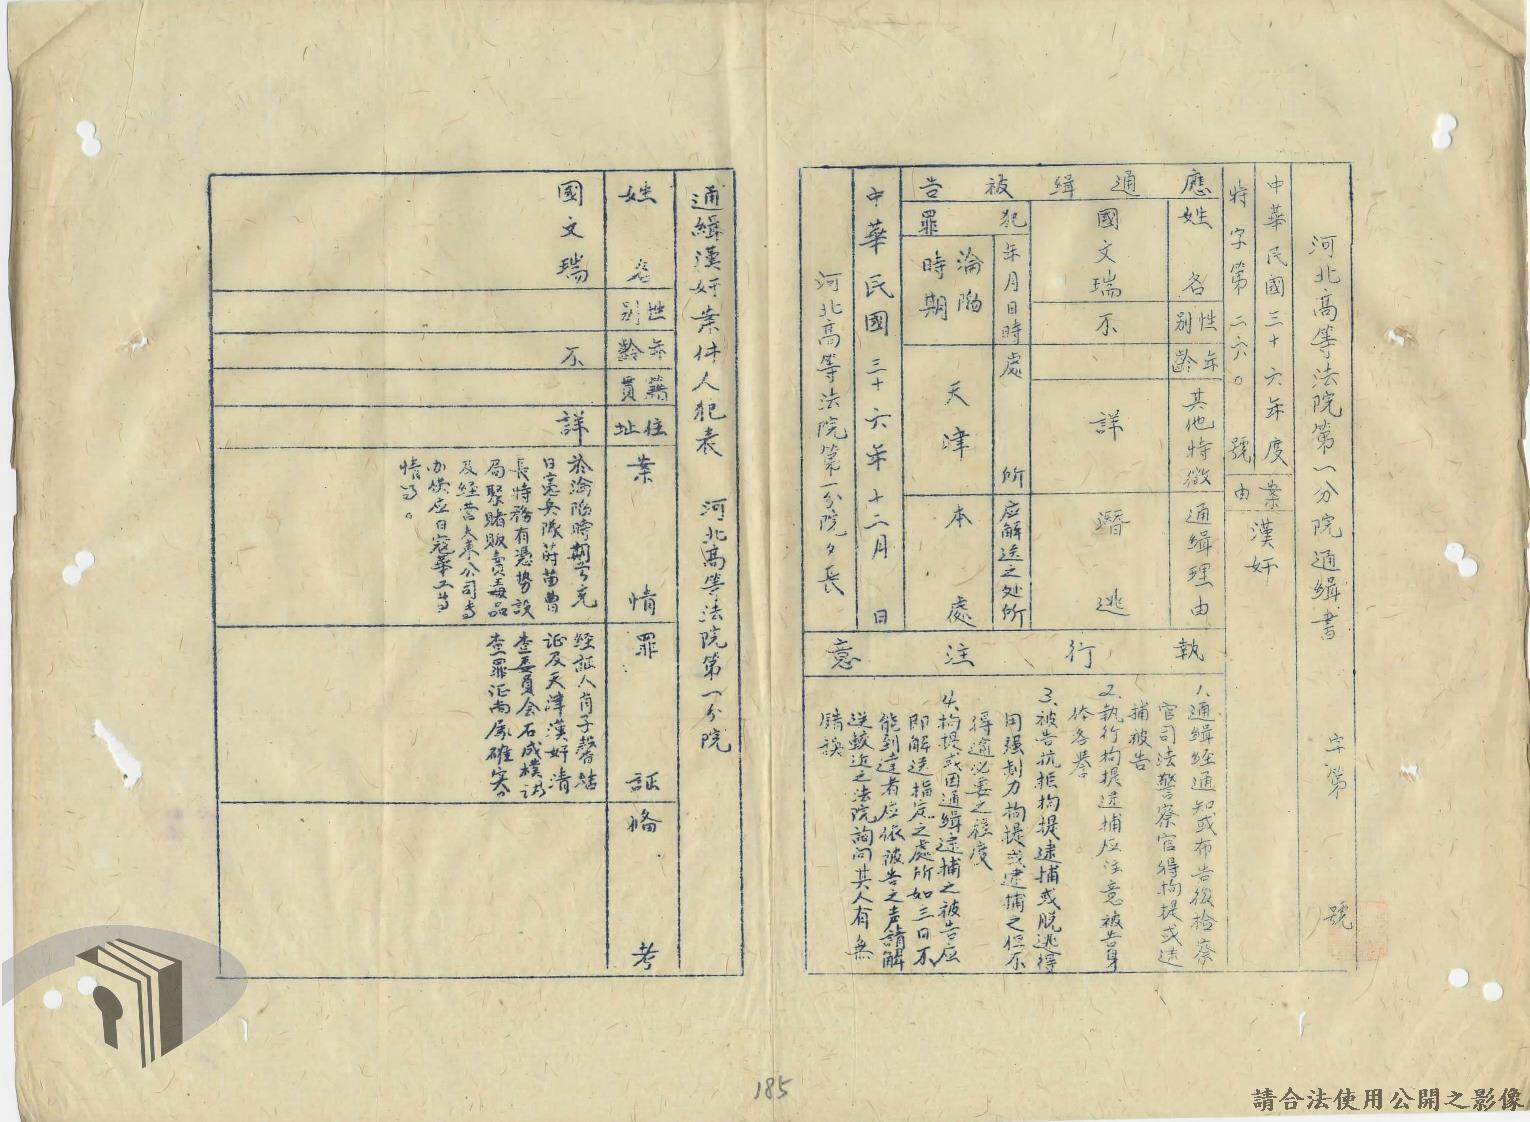 河北高等法院第一分院通緝書 字第 號
中華民國三十六年度
特字第二六〇號
案由
漢奸
應通緝被告
姓名
性別
年齡
其他特徵
通緝理由
國文瑞
不
詳
潛逃
犯罪
年月日時
處所
应解送之处所
淪陷時期
天津
本處
中華民國三十六年十二月 日
河北高等法院第一分院夕長
執行注意
1.通緝經通知或布告後檢察
官司法警察官得拘提或逮
捕被告
2.執行拘提逮捕应注意被告身
体名譽
3.被告抗拒拘提逮捕或脱逃得
用强制力拘提或逮捕之但不
得逾必要之程度
4.拘提或因通緝逮捕之被告应
即解送指定之處所如三日不
能到達者应依被告之声請解
送較近之法院詢问其人有無
錯誤
通緝漢奸案件人犯表 河北高等法院第一分院
姓名
性別
年齡
籍貫
住址
案情
罪証
備考
國文瑞
不
詳
於淪陷時期
日憲兵隊 曹
長特務有憑势設
局聚賭販賣毒品
及經营大東公司
办供应日寇華工等
情子。
经証人肖子馨结
证及天津漢奸清
查委員会石成樸
查罪证尚属確实。
185
請合法使用公開之影像